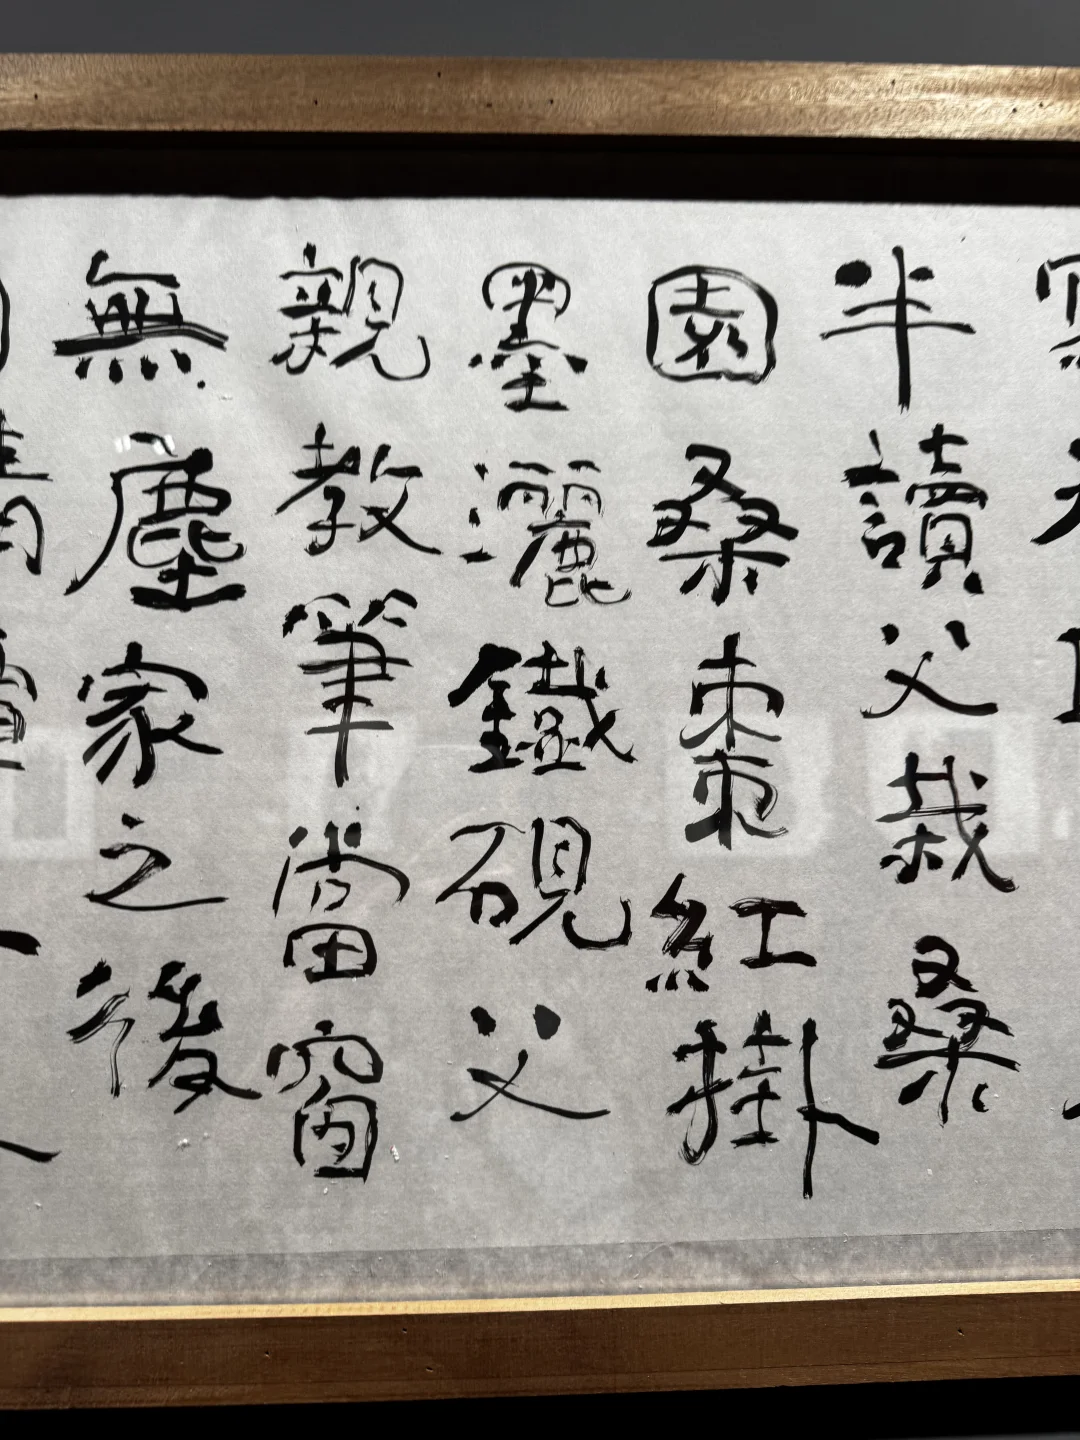 半讀父栽桑
園桑棗紅掛
墨灑鐵硯父
親教筆當窗
無塵家之後